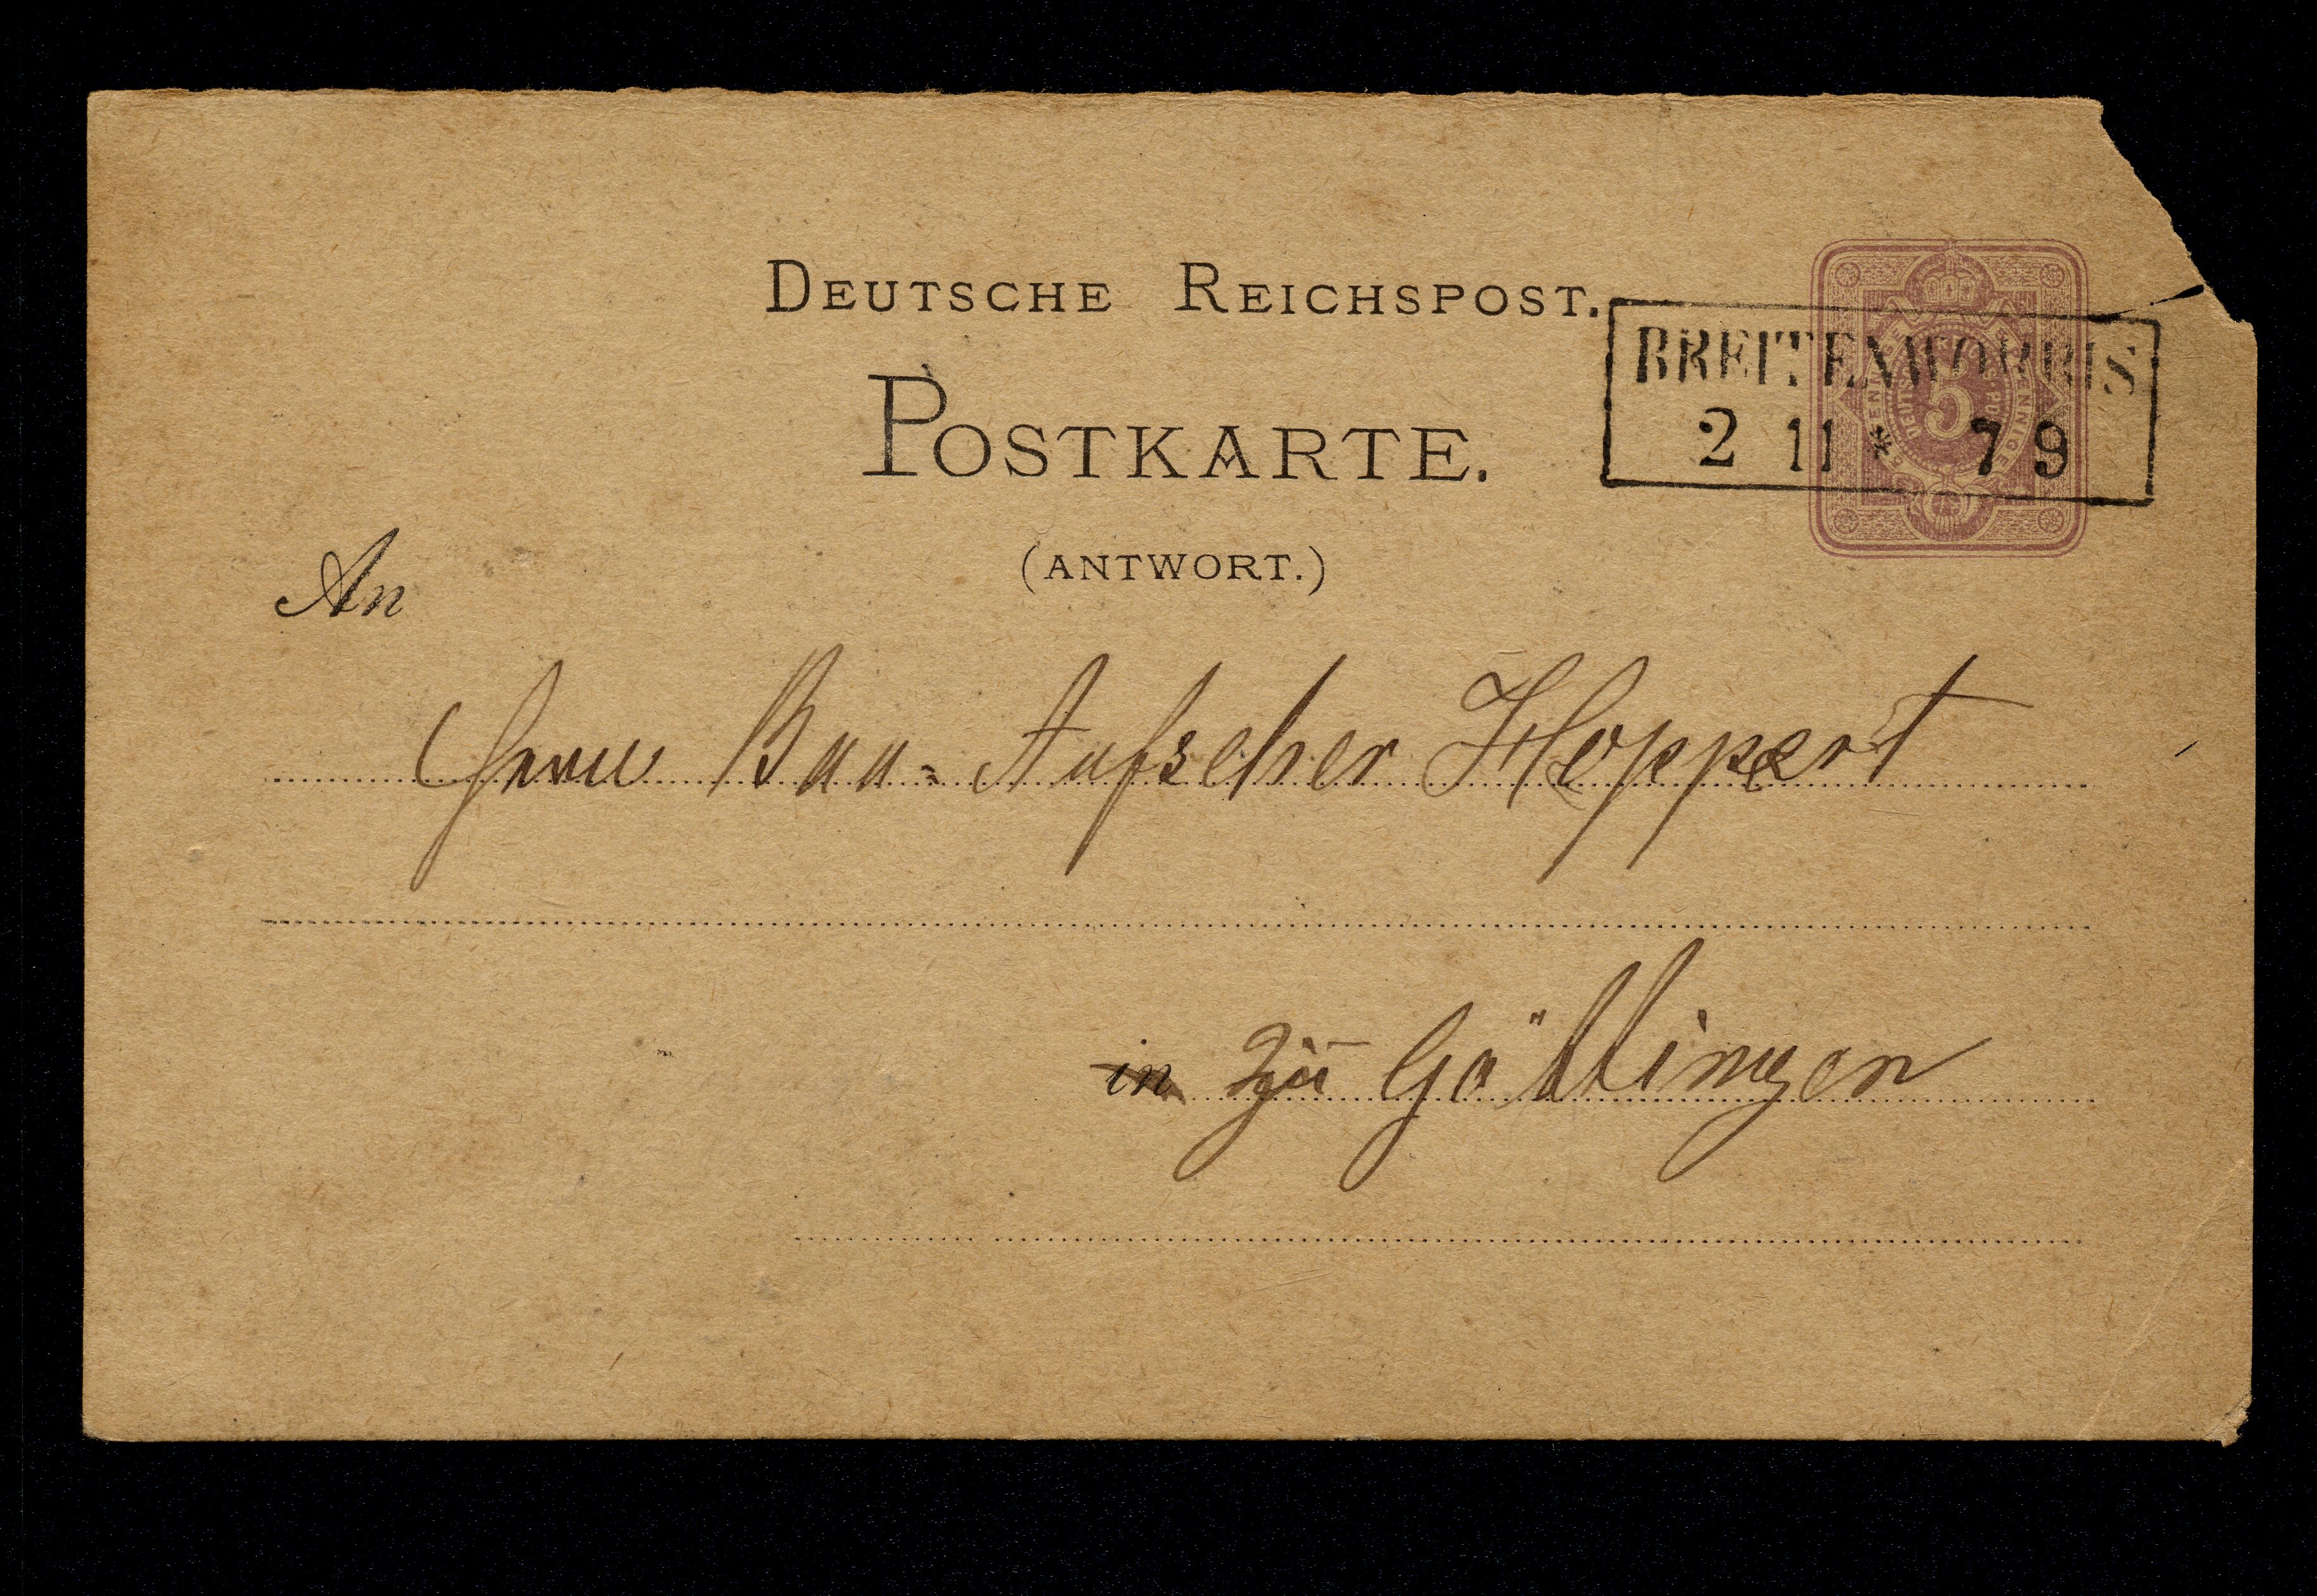 DEUTSCHE REICHSPOST.
BREITENWORBIS
2 11 * 7 9
POSTKARTE.
5
(ANTWORT.)
An
Herrn Bau-Aufseher Hoppert
in zu Göttingen